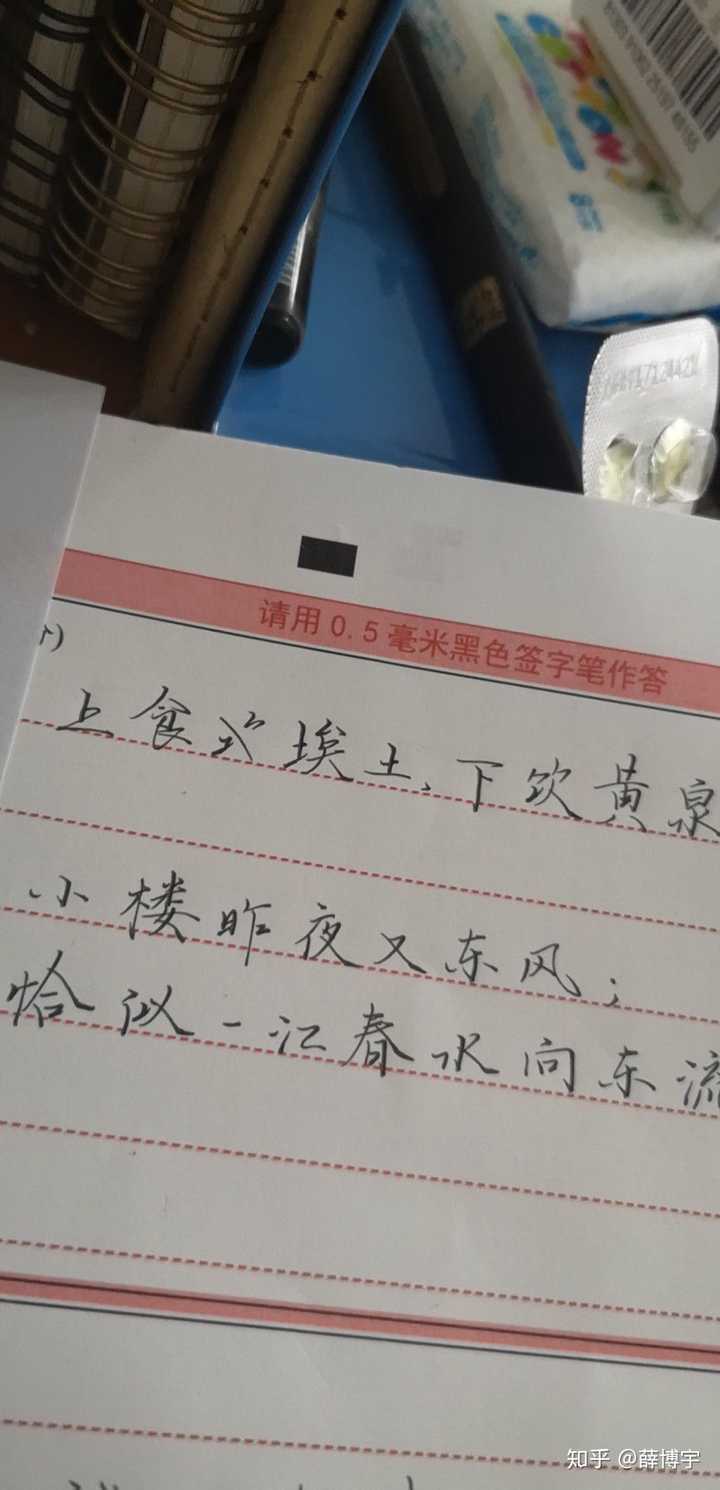 请用0.5毫米黑色签字笔作答
上食式埃土,下饮黄泉
小楼昨夜又东风;
恰似一江春水向东流
知乎 @薛博宇